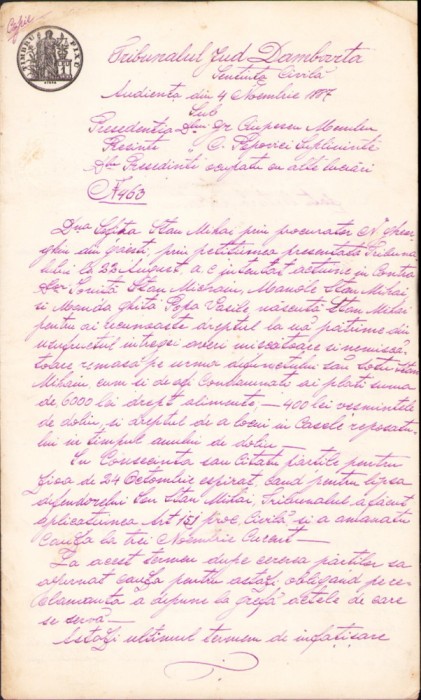 Copie
TIMBRU FIX
Tribunalul Jud Dambovita
Sentinta Civilă
Audienta din 4 Noembrie 1887
Sub
Presedentia Dlui Gr Ciupescu Membru
Presinte C. Popovici Supleininte
Dlu Presedinte ocupatu cu alte lucrări
N 463
Dna Sefita Stan Mihai prin procurator N. Gheor
ghiu din găesci, prin petitiunea presentată Tribuna
lului la 22 August, a c intentat actiune in Contra
Stan Manole Stan Mihai,
si Manda Ghită Popa Vasile, născută Stan Mihai
pentru ai recunoaste dreptul la uă pătrime din
usufructul intregei averi miscătoare si nemiscă
toare remasă pe urma defunctului său Sotu
Mihaiu, cum si de a fi Condamnati ai plati suma
de 6000 lei drept alimente, — 400 lei vesmintele
de doliu, si dreptul de a locui in Casele reposatu
lui in timpul anului de doliu —
In Consecinta sau citatu partile pentru
Zioa de 24 Octombrie espirat, cand pentru lipsa
defendorelui Ion Stan Mihai, Tribunalul a făcut
aplicatiunea Art 151 proc. Civilă si a amânatu
Cauza la trei Noembrie Curent —
La acest termen dupe cererea partilor sa
amenat Cauza pentru astazi, obligand pe re
clamantă a depune la grefă actele de care
se servă —
Astazi ultimul termen de infatisare